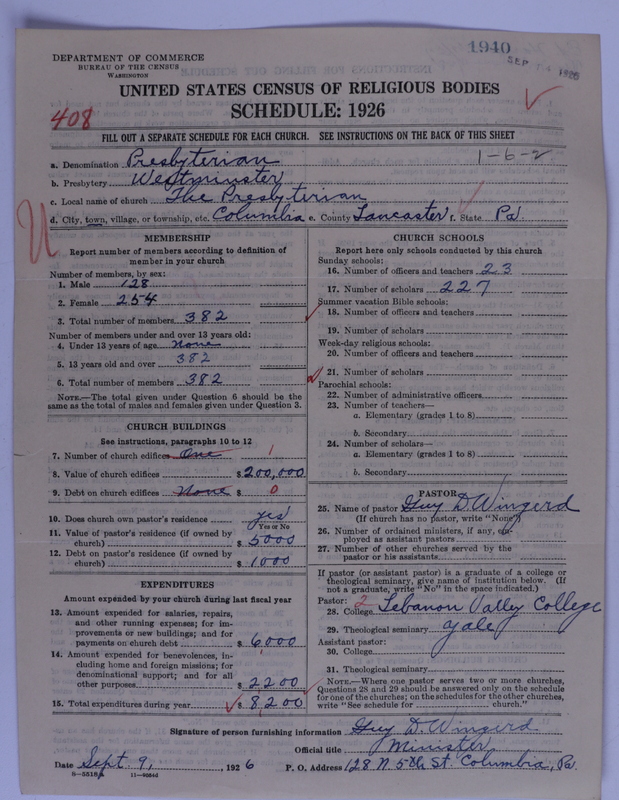 1940
SEP 1926
DEPARTMENT OF COMMERCE
BUREAU OF THE CENSUS
WASHINGTON
UNITED STATES CENSUS OF RELIGIOUS BODIES
SCHEDULE: 1926
408
FILL OUT A SEPARATE SCHEDULE FOR EACH CHURCH. SEE INSTRUCTIONS ON THE BACK OF THIS SHEET
a. Denomination Presbyterian 1-6-2
b. Presbytery Westminster
c. Local name of church The Presbyterian
d. City, town, village, or township, etc. Columbia e. County Lancaster f. State Pa.
U
MEMBERSHIP
Report number of members according to definition of
member in your church
Number of members, by sex:
1. Male 128
2. Female 254
3. Total number of members 382
Number of members under and over 13 years old:
4. Under 13 years of age None
5. 13 years old and over 382
6. Total number of members 382
NOTE.—The total given under Question 6 should be
same as the total of males and females given under Question 3.
CHURCH BUILDINGS
See instructions, paragraphs 10 to 12
7. Number of church edifices One 1
8. Value of church edifices $ 200,000
9. Debt on church edifices None $ 0
10. Does church own pastor's residence yes
Yes or No
11. Value of pastor's residence (if owned by
church) $ 5000
12. Debt on pastor's residence (if owned by
church) $ 1000
EXPENDITURES
Amount expended by your church during last fiscal year
13. Amount expended for salaries, repairs,
and other running expenses; for im-
provements or new buildings; and for
payments on church debt $ 6,000
14. Amount expended for benevolences, in-
cluding home and foreign missions; for
denominational support; and for all
other purposes $ 2200
15. Total expenditures during year $ 8,200
CHURCH SCHOOLS
Report here only schools conducted by this church
Sunday schools:
16. Number of officers and teachers 23
17. Number of scholars 227
Summer vacation Bible schools:
18. Number of officers and teachers
19. Number of scholars
Week-day religious schools:
20. Number of officers and teachers
21. Number of scholars
Parochial schools:
22. Number of administrative officers
23. Number of teachers—
a. Elementary (grades 1 to 8)
b. Secondary
24. Number of scholars—
a. Elementary (grades 1 to 8)
b. Secondary
PASTOR
25. Name of pastor Guy D. Wingerd
(If church has no pastor, write "None")
26. Number of ordained ministers, if any, em-
ployed as assistant pastors
27. Number of other churches served by the
pastor or his assistants
If pastor (or assistant pastor) is a graduate of a college or
theological seminary, give name of institution below. (If
not a graduate, write "No" in the space indicated.)
Pastor: 2
28. College Lebanon Valley College
29. Theological seminary Yale
Assistant pastor:
30. College
31. Theological seminary
NOTE.—Where one pastor serves two or more churches,
Questions 28 and 29 should be answered only on the schedule
for one of the churches; on the schedules for the other churches,
write "See schedule for church."
Signature of person furnishing information Guy D. Wingerd
Official title Minister
Date Sept. 9, 1926 P. O. Address 128 N. 5th St. Columbia, Pa.